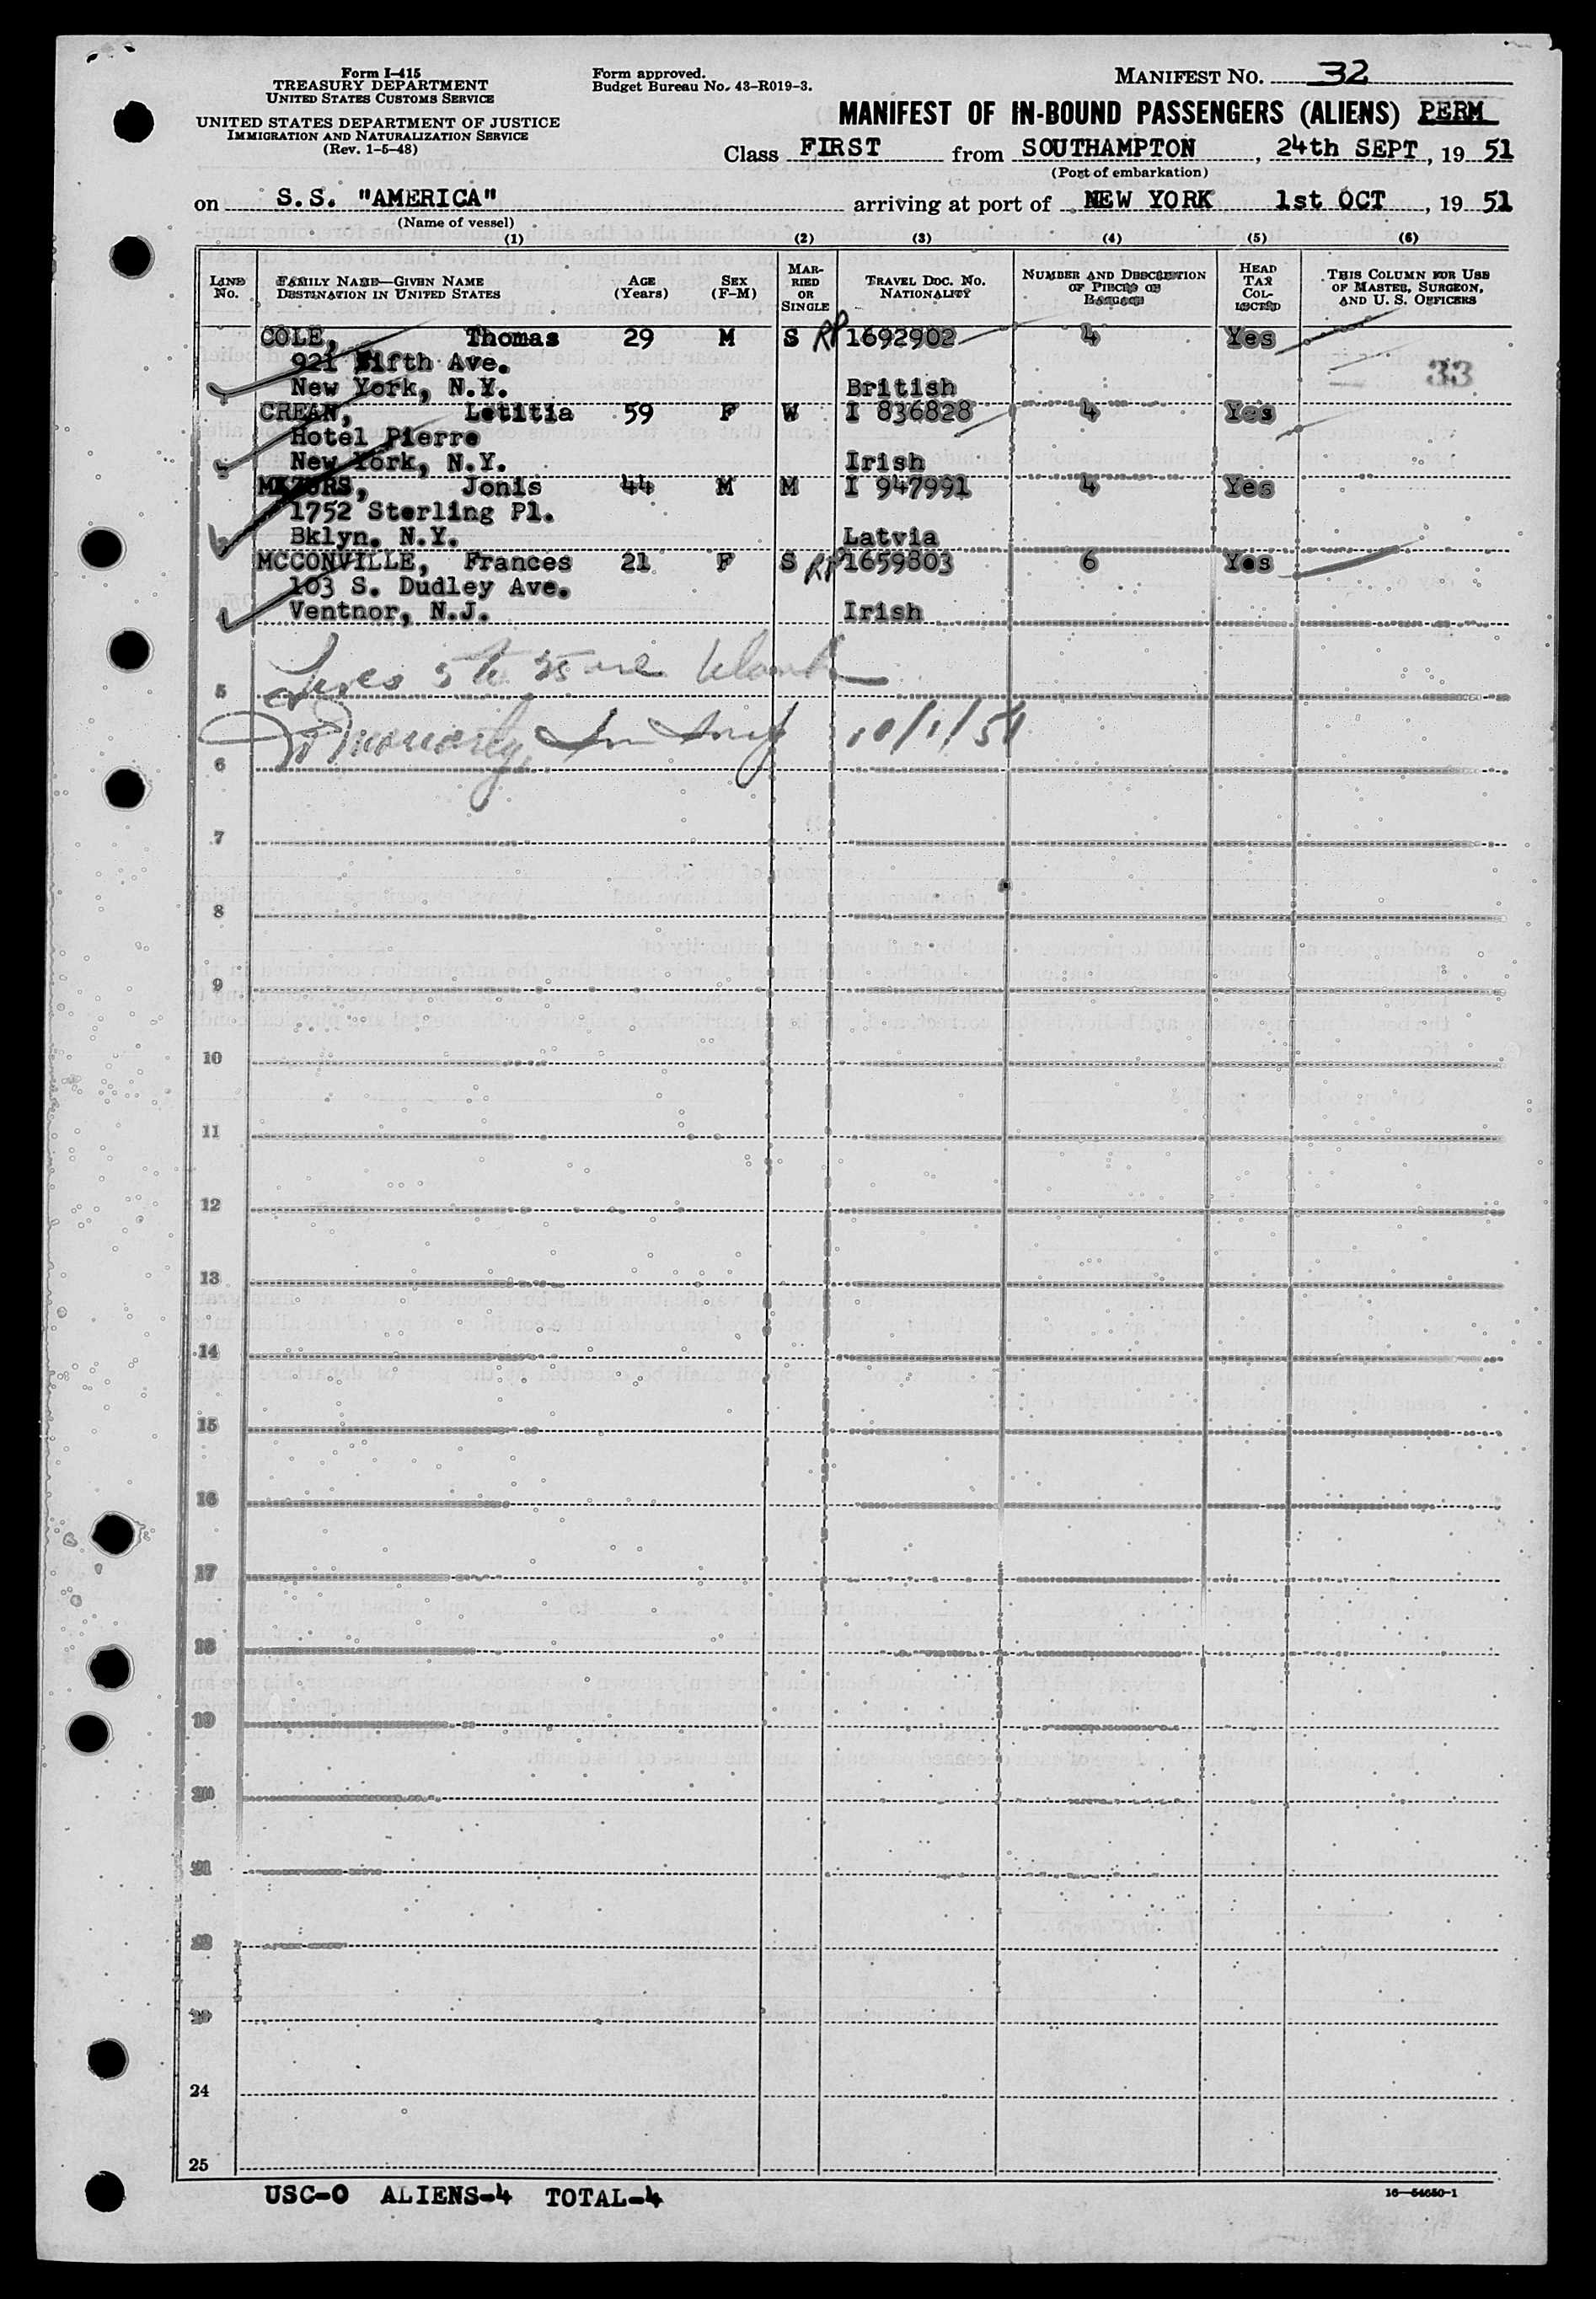 Form I-415
TREASURY DEPARTMENT
UNITED STATES CUSTOMS SERVICE
UNITED STATES DEPARTMENT OF JUSTICE
IMMIGRATION AND NATURALIZATION SERVICE
(Rev. 1-5-48)
Form approved.
Budget Bureau No. 43-R019-3.
MANIFEST NO. 32
MANIFEST OF IN-BOUND PASSENGERS (ALIENS) PERM
Class FIRST from SOUTHAMPTON, 24th SEPT, 19 51
(Port of embarkation)
on S.S. "AMERICA" arriving at port of NEW YORK 1st OCT, 19 51
(Name of vessel)
(1) (2) (3) (4) (5) (6)
LINE NO.
FAMILY NAME—GIVEN NAME
DESTINATION IN UNITED STATES
AGE (Years)
SEX (F-M)
MARRIED OR SINGLE
TRAVEL DOC. NO.
NATIONALITY
NUMBER AND DESCRIPTION OF PIECES OF BAGGAGE
HEAD TAX COLLECTED
THIS COLUMN FOR USE OF MASTER, SURGEON, AND U. S. OFFICERS
COLE, Thomas 29 M S RP 1692902 4 Yes
921 Fifth Ave.
New York, N.Y. British 33
CREAN, Letitia 59 F W I 836828 4 Yes
Hotel Pierre
New York, N.Y. Irish
MAZURS, Jonis 44 M M I 947991 4 Yes
1752 Sterling Pl.
Bklyn. N.Y. Latvia
MCCONVILLE, Frances 21 F S RP 1659803 6 Yes
103 S. Dudley Ave.
Ventnor, N.J. Irish
Lines 5 to 25 are blank
5
Imm Insp 10/1/51
6
7
8
9
10
11
12
13
14
15
16
17
18
19
20
21
22
23
24
25
USC-0 ALIENS-4 TOTAL-4
16—54650-1